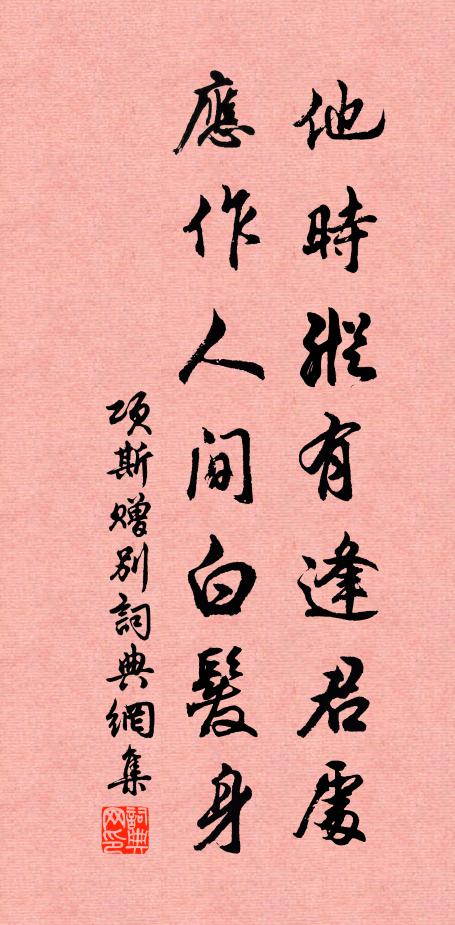 他時縱有逢君處
應作人間白髮身
項斯贈別詞典網集
詞典网印